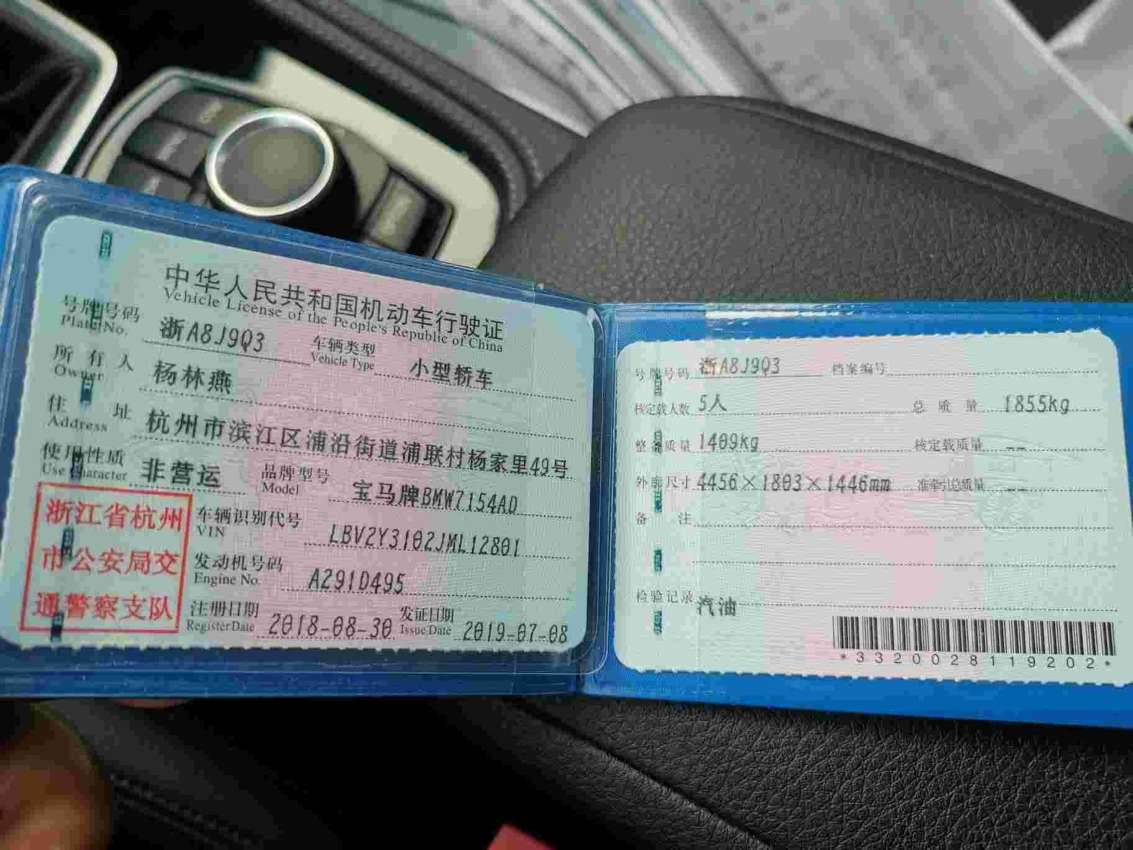 中华人民共和国机动车行驶证
Vehicle License of the People's Republic of China
号牌号码 浙A8J9Q3 车辆类型 小型轿车
Plate No. Vehicle Type
所有人 杨林燕
Owner
住址 杭州市滨江区浦沿街道浦联村杨家里49号
Address
使用性质 非营运 品牌型号 宝马牌BMW7154AD
Use Character Model
浙江省杭州
市公安局交
通警察支队
车辆识别代号 LBV2Y3102JML12801
VIN
发动机号码 A291D495
Engine No.
注册日期 2018-08-30 发证日期 2019-07-08
Register Date Issue Date
号牌号码 浙A8J9Q3 档案编号
核定载人数 5人 总质量 1855kg
整备质量 1409kg 核定载质量 --
外廓尺寸 4456×1803×1446mm 准牵引总质量 --
备注
检验记录 汽油
*3320028119202*